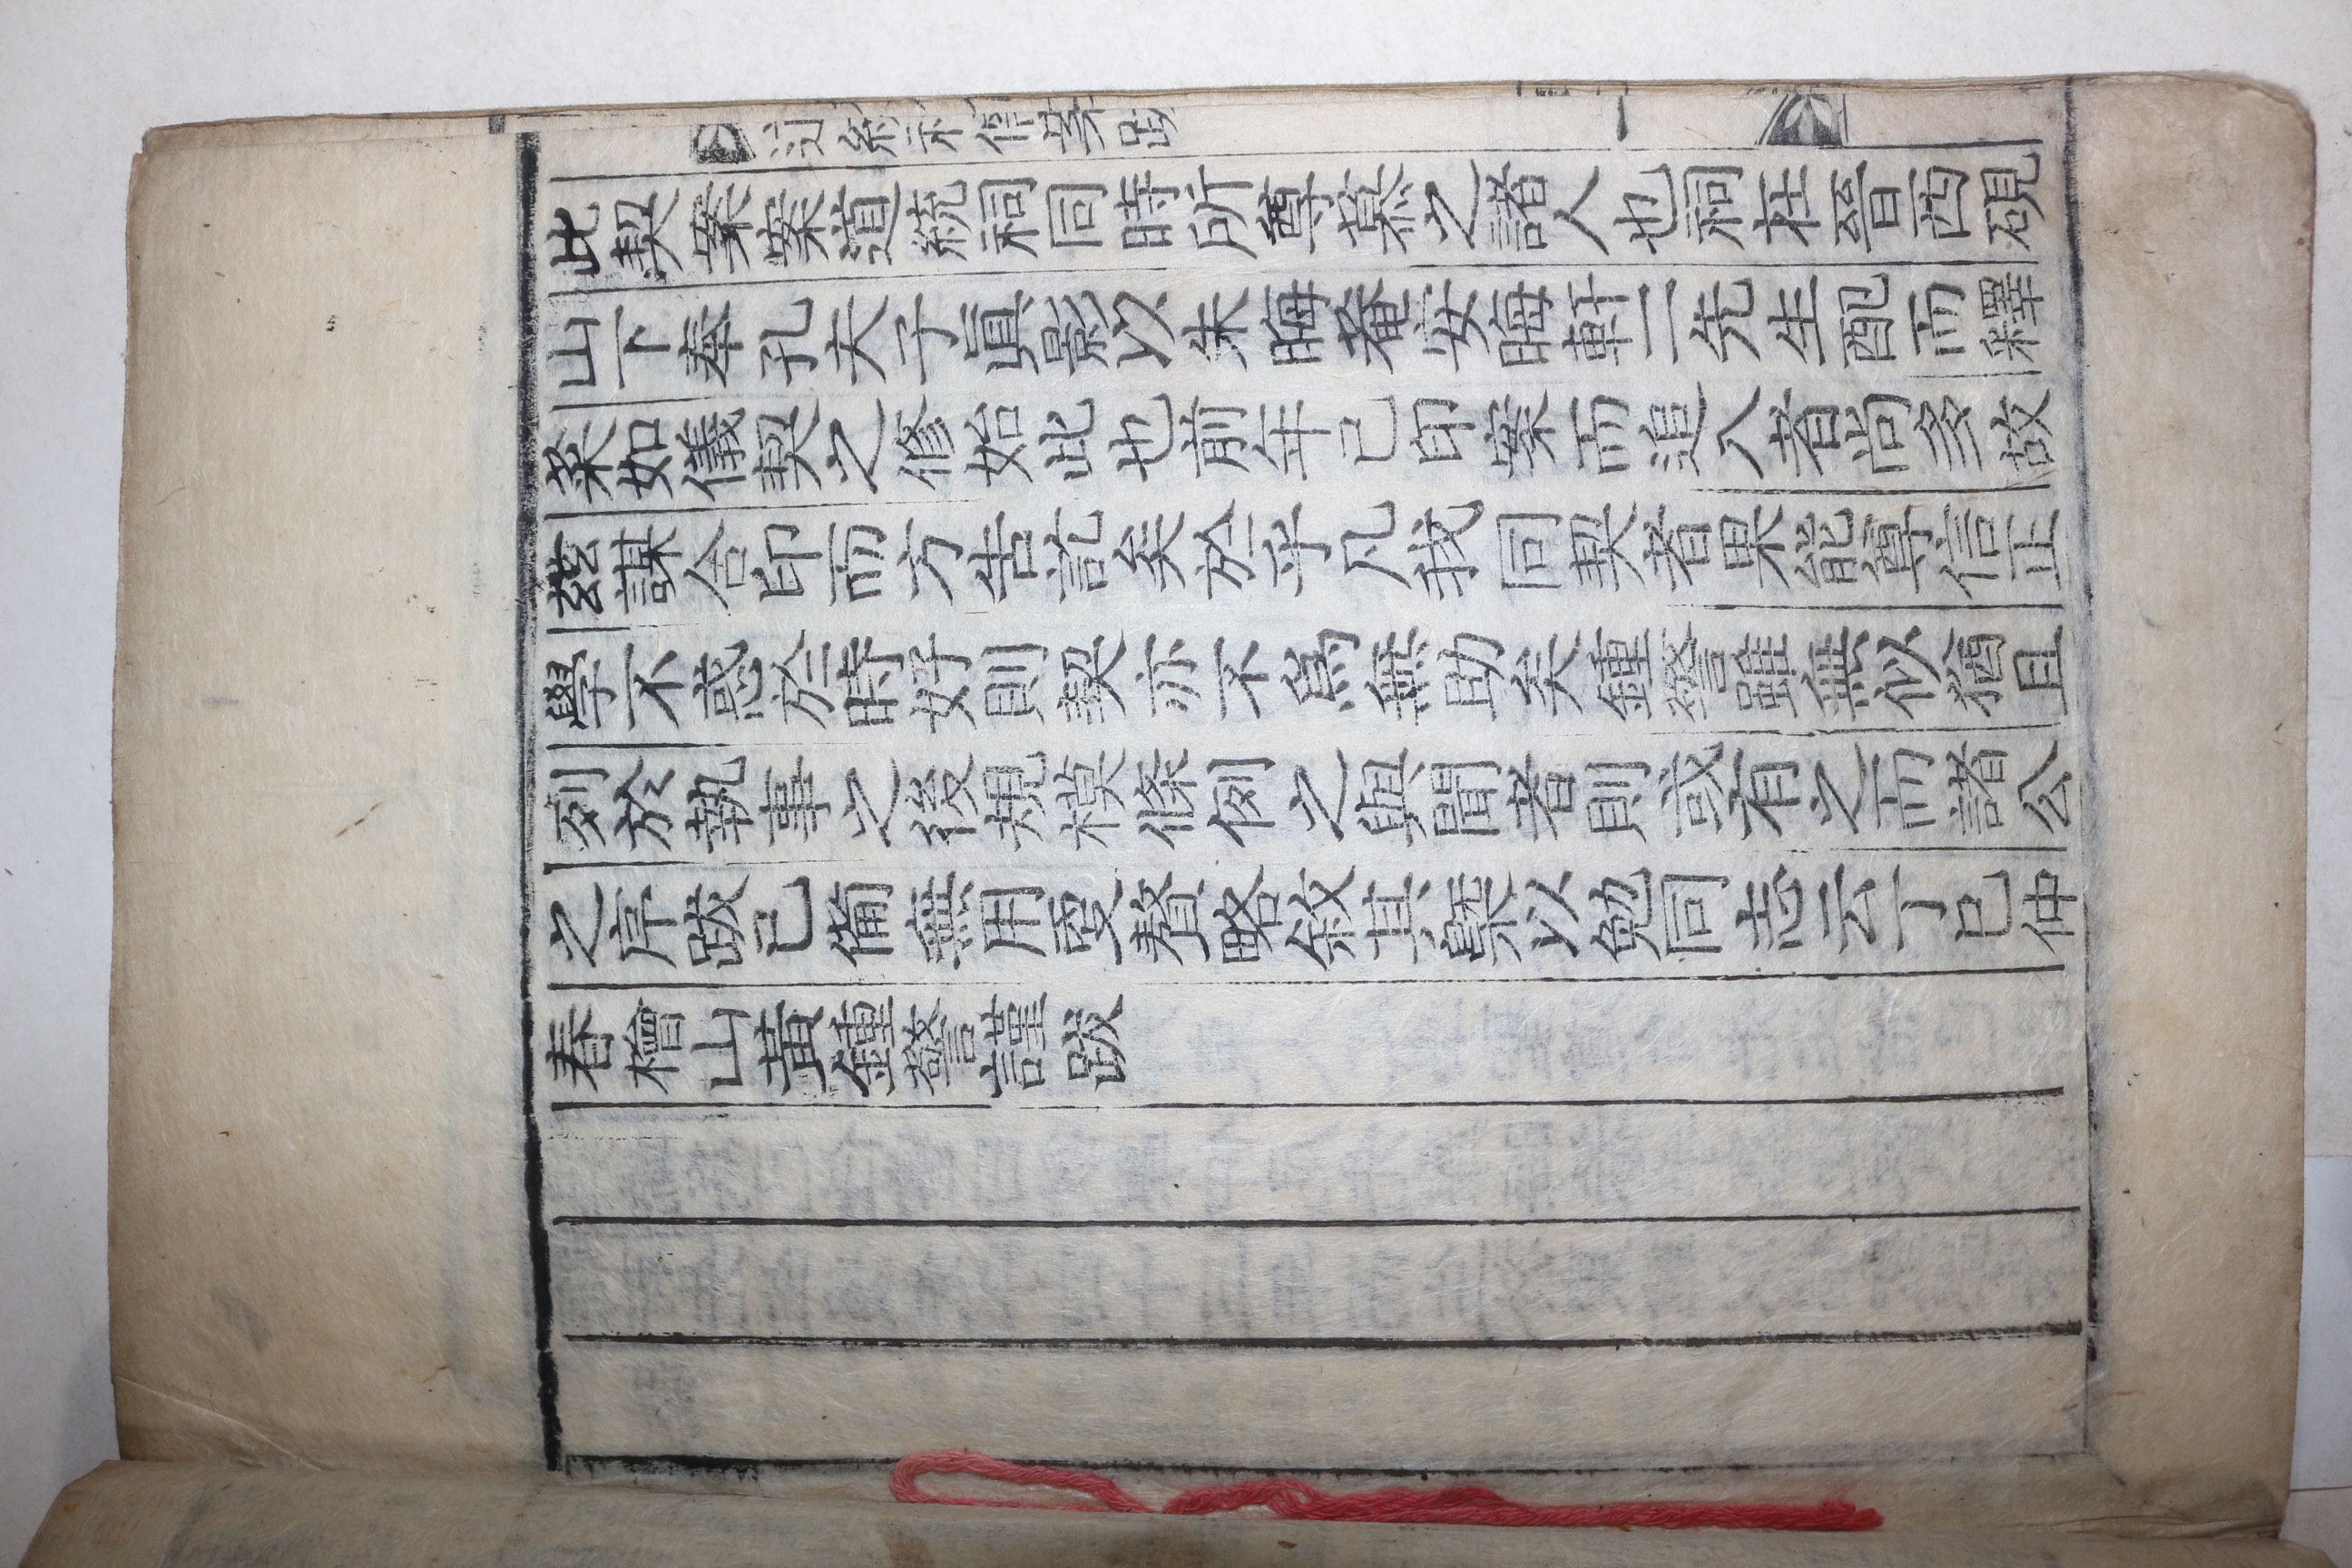 此契案案道統祠同時所尊慕之諸人也祠在晉西硯
山下奉孔夫子眞影以朱晦菴安晦軒二先生配而釋
菜如儀契之修始此也前年已印案而追入者尚多故
玆謀合印而方告訖矣於乎凡我同契者果能尊信正
學不惑於時好則契亦不爲無助矣鍾警雖無似猶且
列於執事之後規模條例之與聞者則或有之而諸公
之序跋已備無用更贅略敘其槩以勉同志云丁巳仲
春檜山黃鍾警謹跋